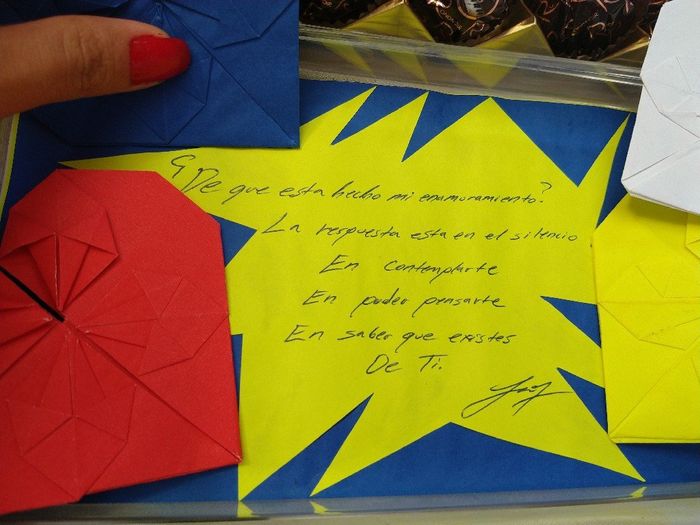 ¿De que esta hecho mi enamoramiento?
La respuesta esta en el silencio
En contemplarte
En poder pensarte
En saber que existes
De Ti.